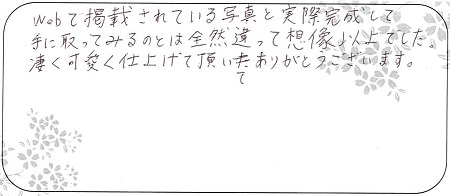 webで掲載されている写真と実際完成して
手に取ってみるのとは全然違って想像以上でした。
凄く可愛く仕上げて頂いてありがとうございます。